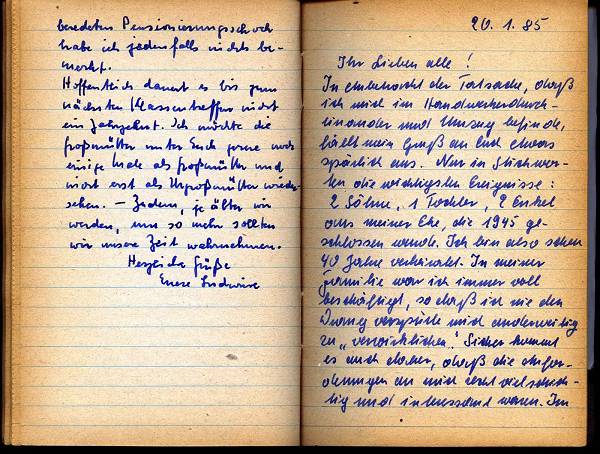 beredeten Pensionierungsschock
habe ich jedenfalls nichts be-
merkt.
Hoffentlich dauert es bis zum
nächsten Klassentreffen nicht
ein Jahrzehnt. Ich möchte die
Großmütter unter Euch gerne noch
einige Male als Großmütter und
nicht erst als Urgroßmütter wieder-
sehen. – Zudem, je älter wir
werden, um so mehr sollten
wir unsere Zeit wahrnehmen.
Herzliche Grüße
Eure
20. 1. 85
Ihr Lieben alle!
In anbetracht der Tatsache, daß
ich mich im Handwerkerdurch-
einander und Umzug befinde,
fällt mein Gruß an Euch etwas
spärlich aus. Nur in Stichwor-
ten die wichtigsten Ereignisse:
2 Söhne, 1 Tochter, 2 Enkel
aus meiner Ehe, die 1945 ge-
schlossen wurde. Ich bin also schon
40 Jahre verheiratet. In meiner
Familie war ich immer voll
beschäftigt, so daß ich nie den
Drang verspürte mich anderweitig
zu „verwirklichen". Sicher kommt
es auch daher, daß die Anfor-
derungen an mich recht vielschich-
tig und interessant waren. Im